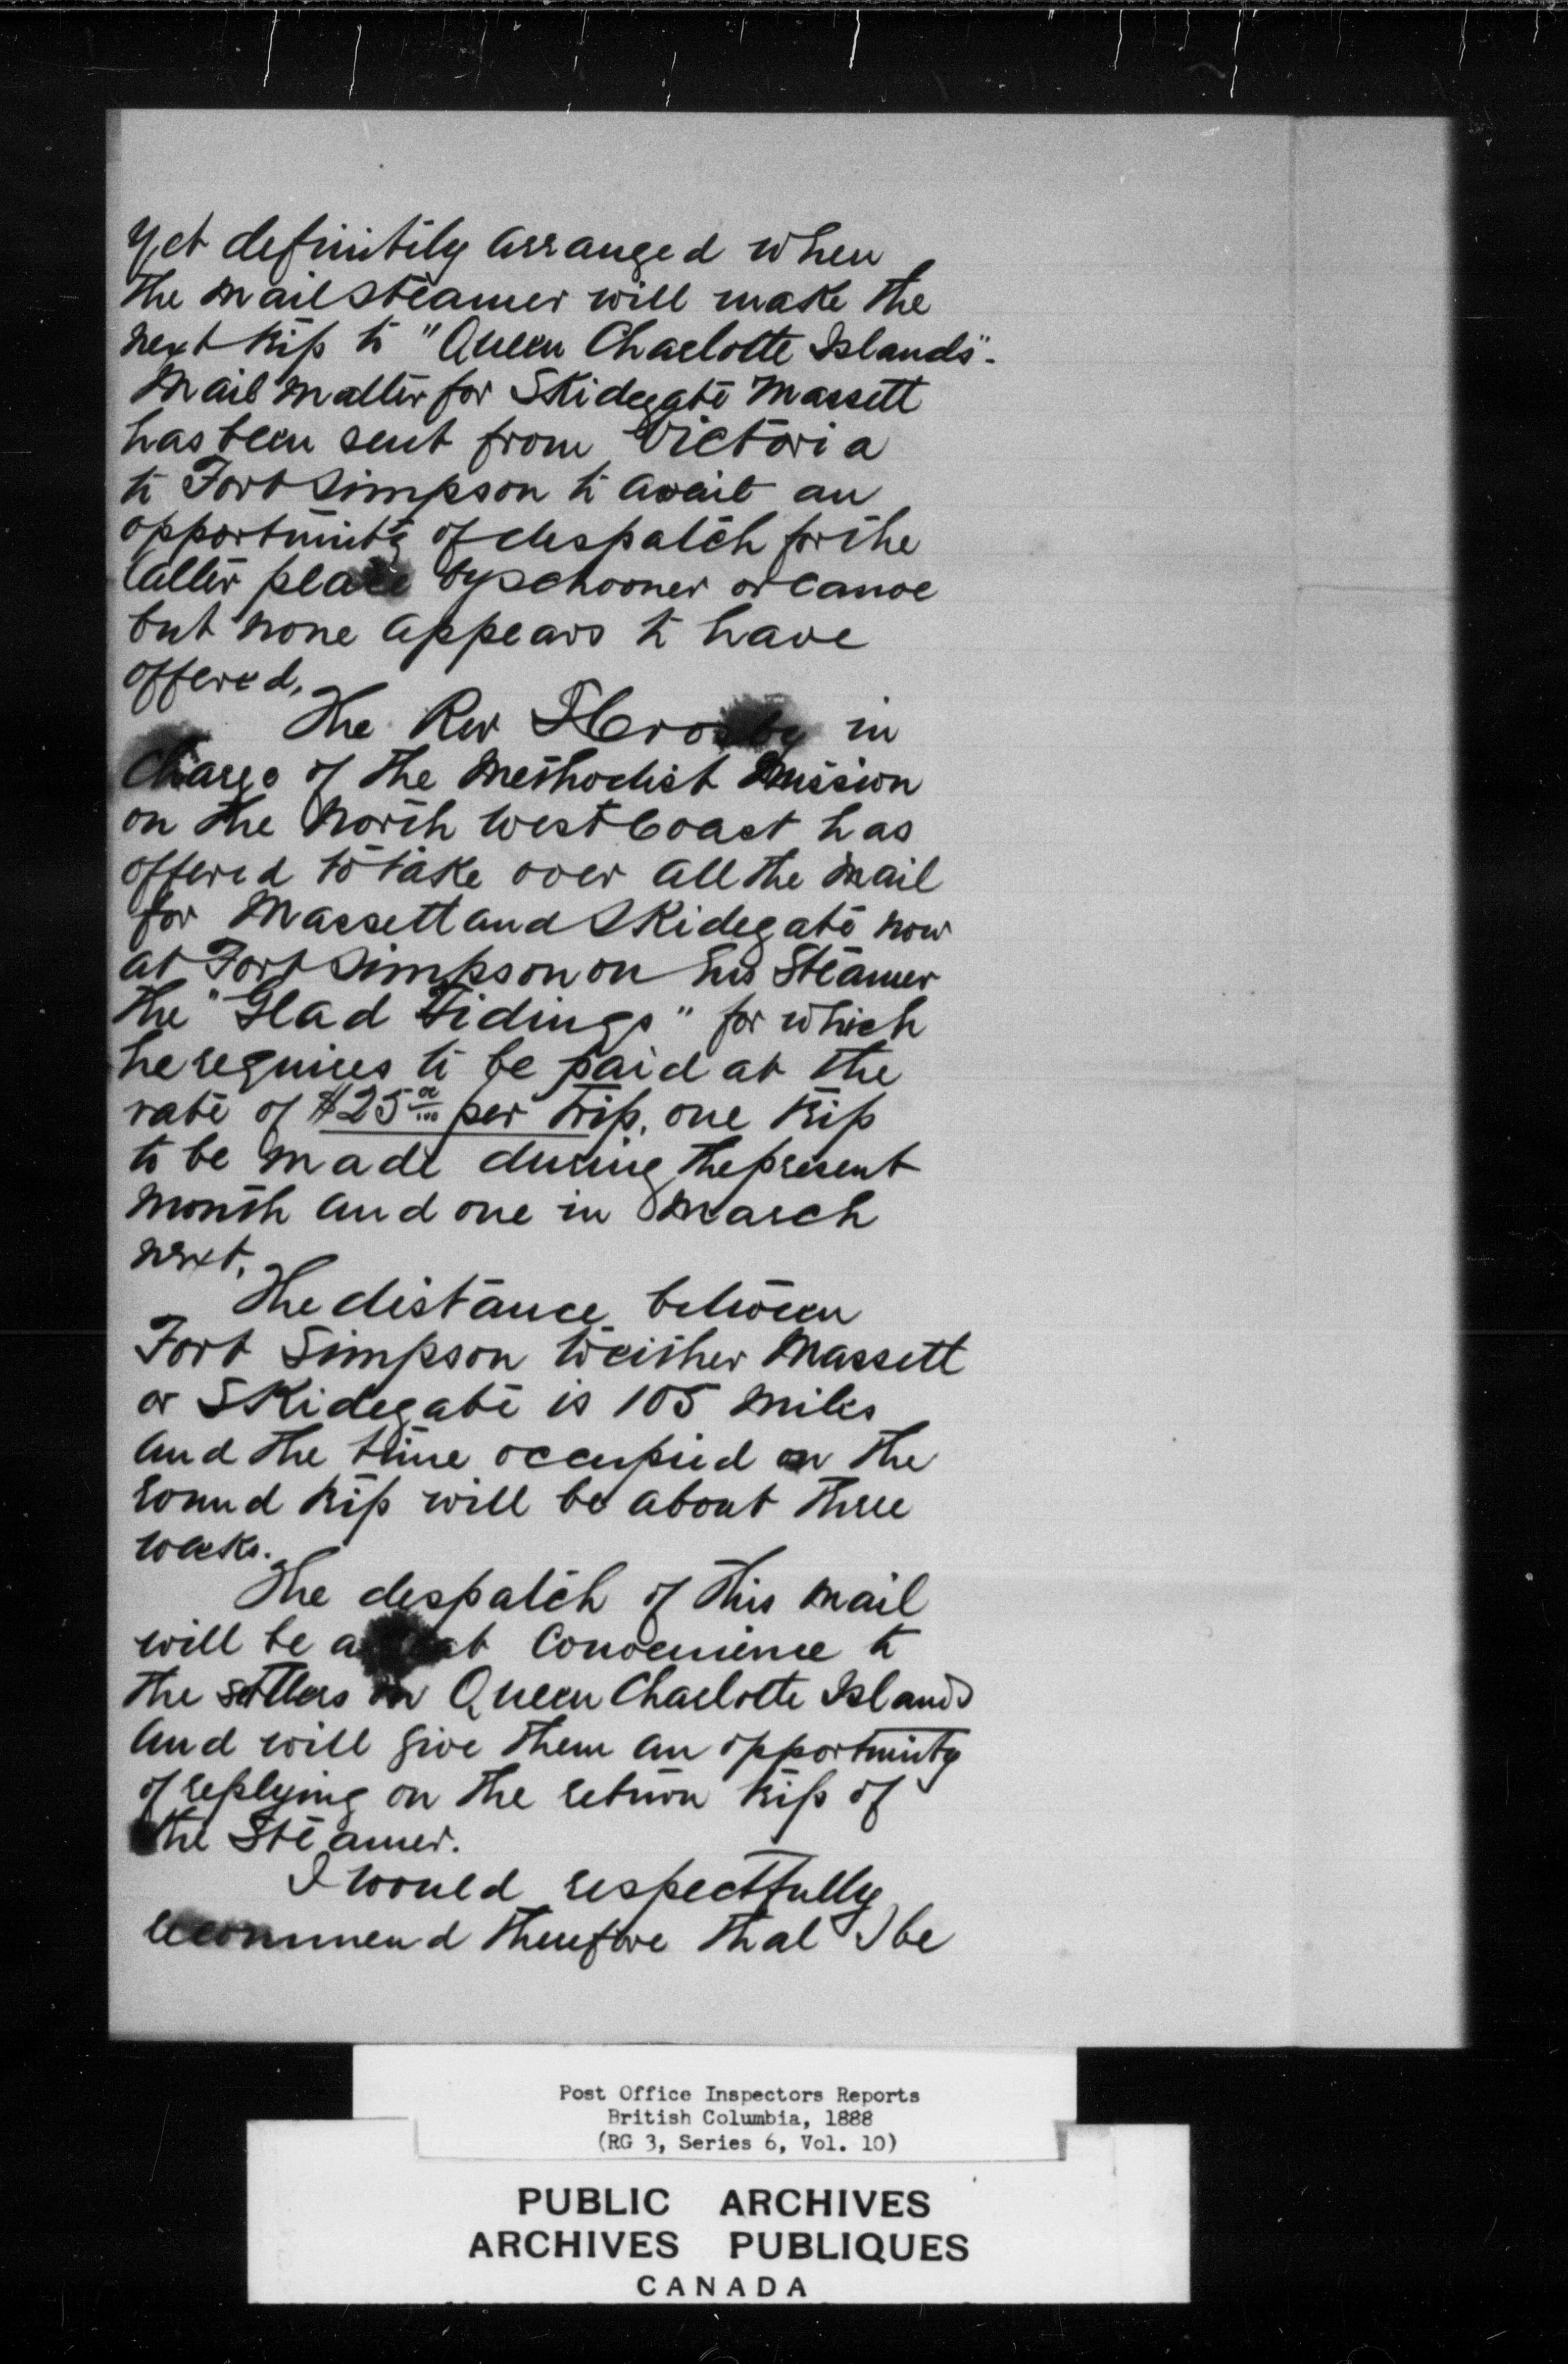 yet definitily arranged when
the mail steamer will make the
next trip to "Queen Charlotte Islands".
Mail matter for Skidegate Massett
has been sent from Victoria
to Fort Simpson to await an
opportunity of despatch for the
latter place by schooner or canoe
but none appears to have
offered.
The Rev T Crosby in
charge of the Methodist Mission
on the North West Coast has
offered to take over all the mail
for Massett and Skidegate now
at Fort Simpson on his Steamer
the "Glad Tidings" for which
he requires to be paid at the
rate of $25 00/100 per trip, one trip
to be made during the present
month and one in March
next.
The distance between
Fort Simpson to either Massett
or Skidegate is 105 miles
and the time occupied on the
round trip will be about three
weeks.
The despatch of this mail
will be a convenience to
the settlers on Queen Charlotte Islands
and will give them an opportunity
of replying on the return trip of
the Steamer.
I would respectfully
recommend therefore that I be
Post Office Inspectors Reports
British Columbia, 1888
(RG 3, Series 6, Vol. 10)
PUBLIC ARCHIVES
ARCHIVES PUBLIQUES
CANADA